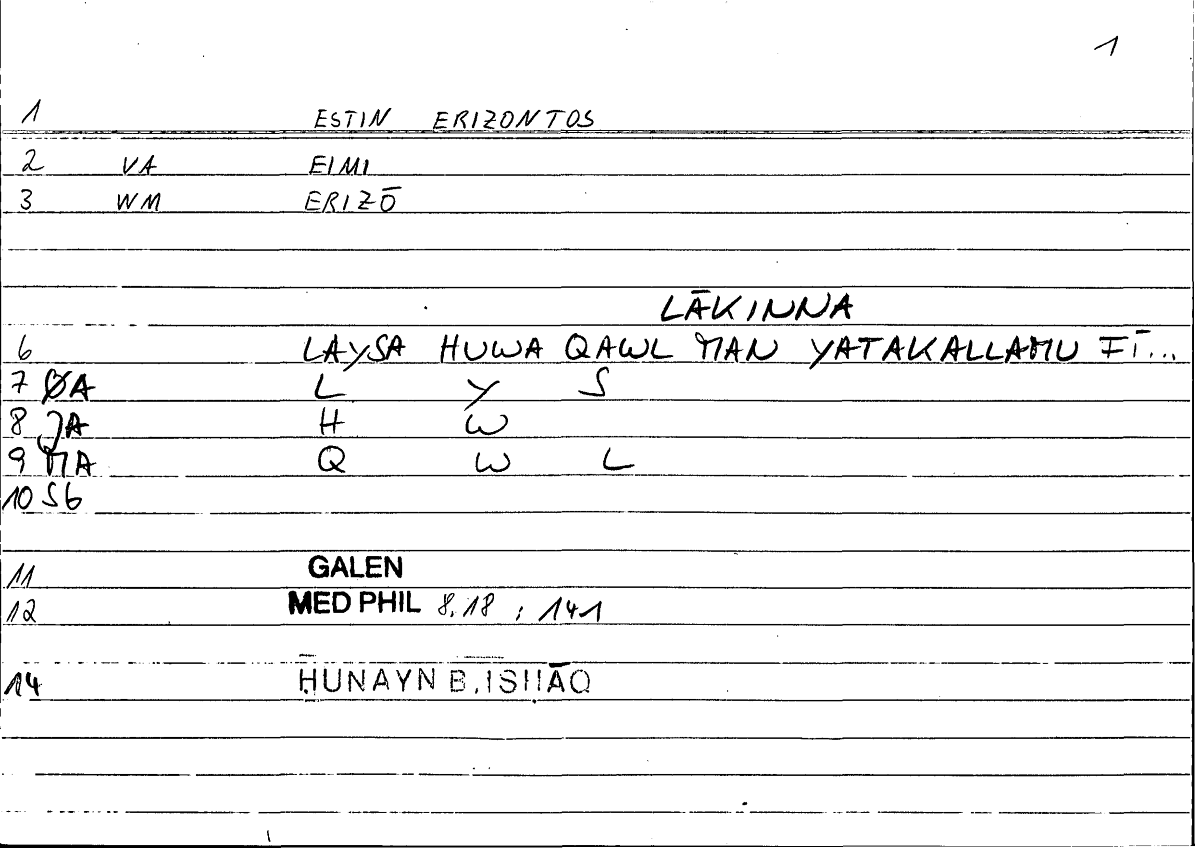 1
1 ESTIN ERIZONTOS
2 VA EIMI
3 WM ERIZŌ
LĀKINNA
6 LAYSA HUWA QAWL MAN YATAKALLAMU FĪ...
7 ØA L Y S
8 JA H W
9 MA Q W L
10 SG
11 GALEN
12 MED PHIL 8.18 ; 141
14 ḤUNAYN B. ISḤĀQ